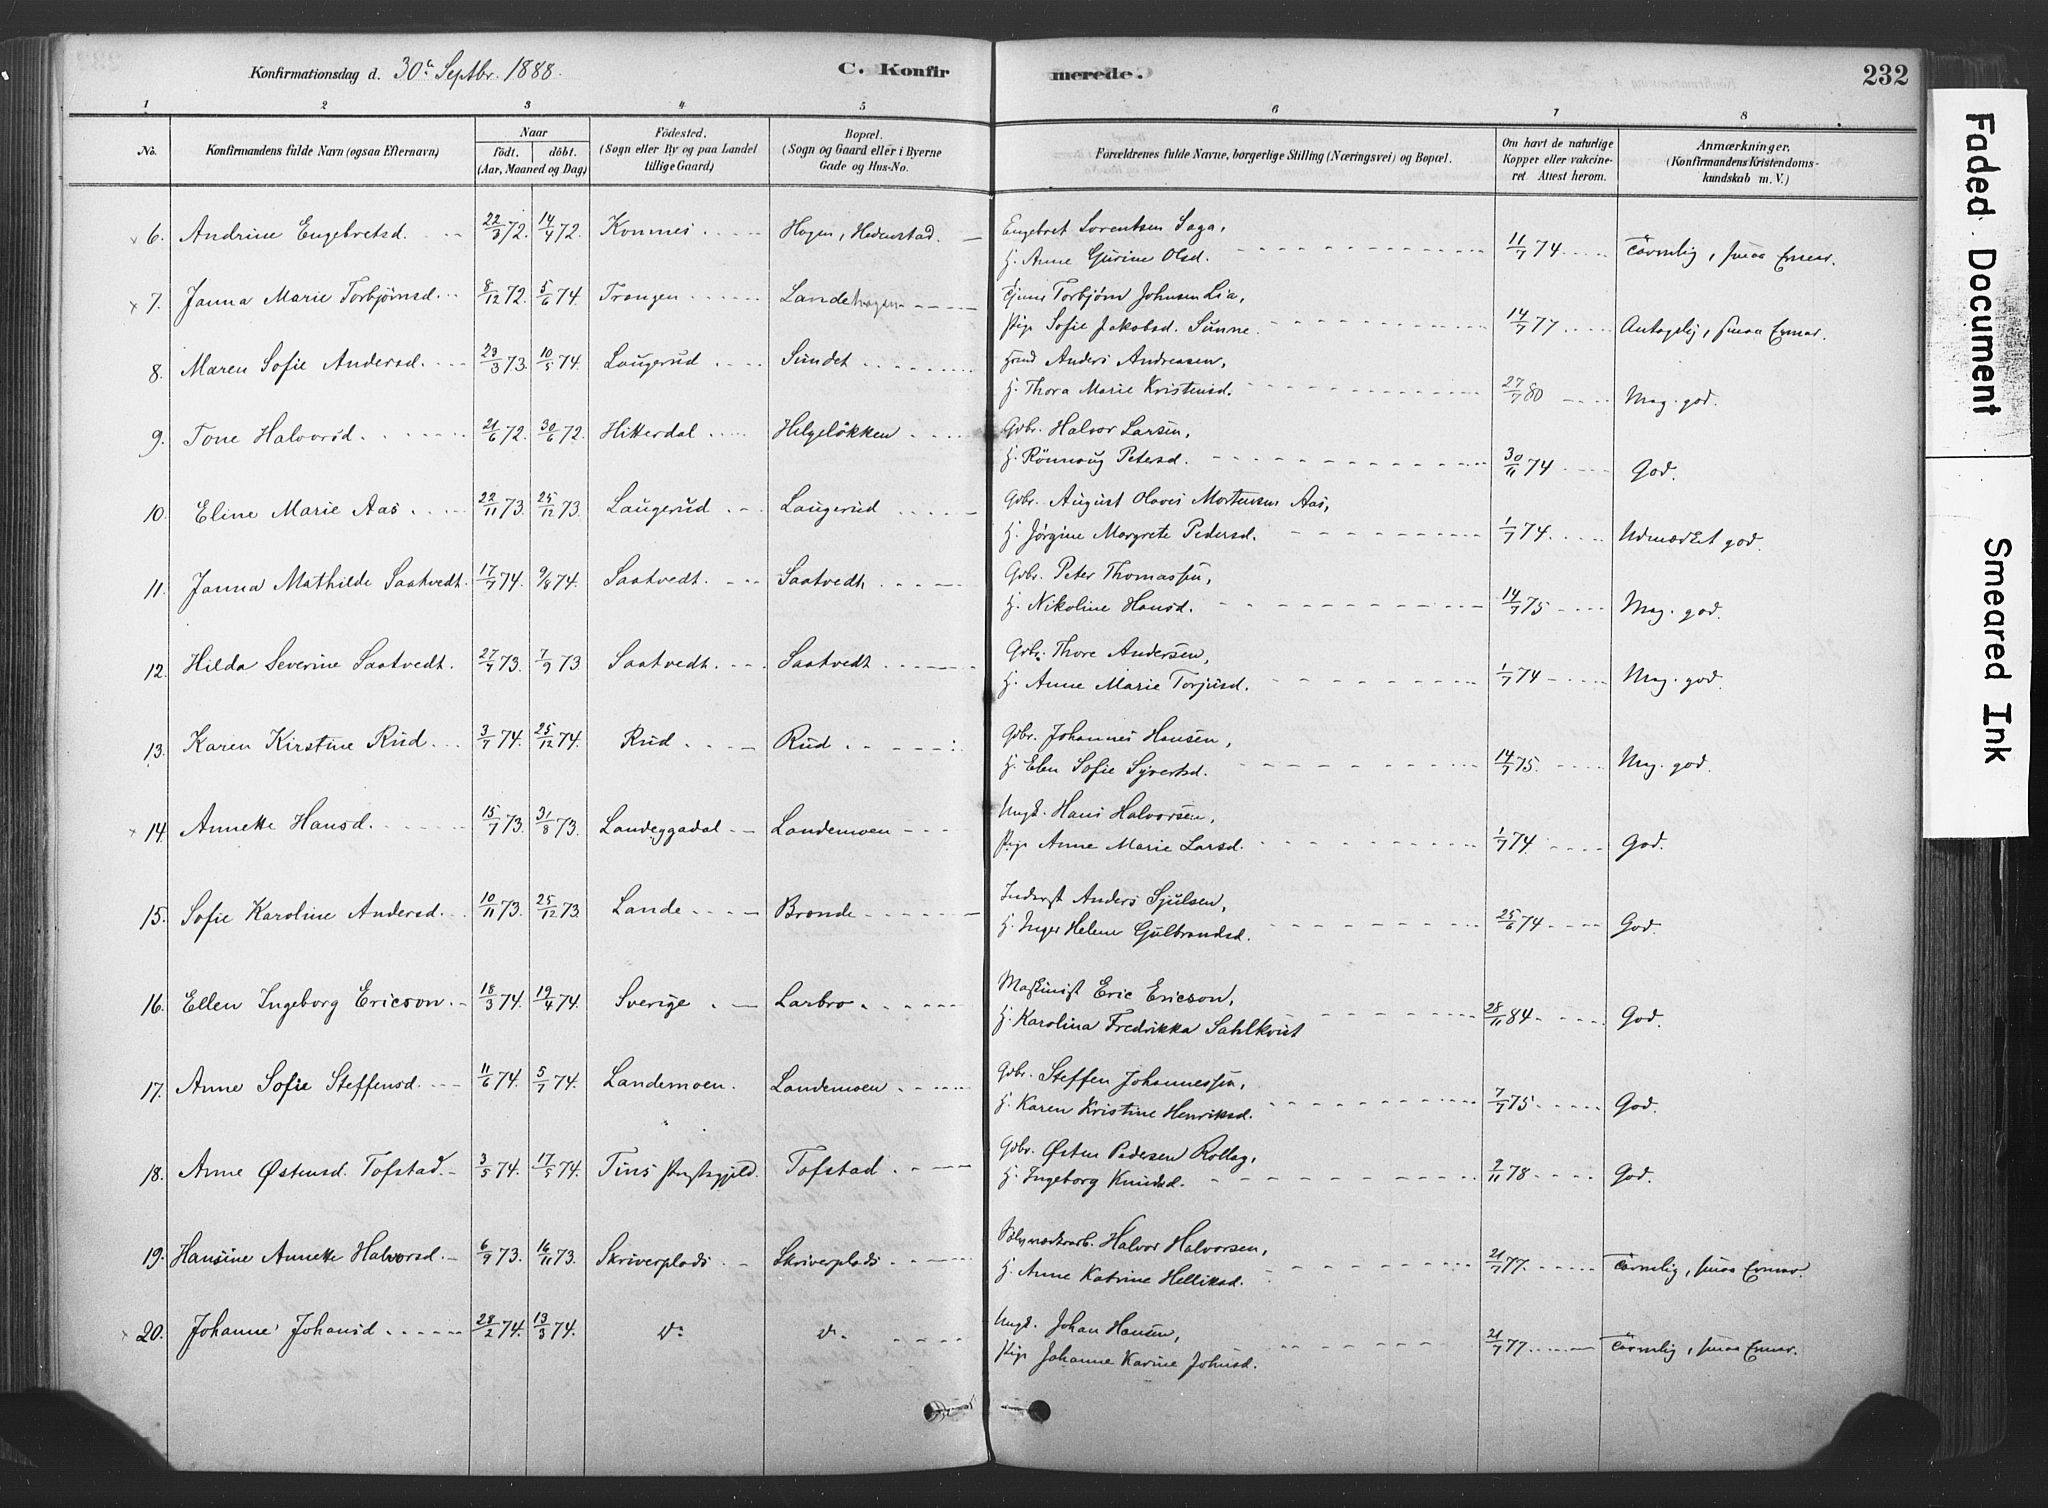 Konfirmationsdag d. 30te Septbr. 1888. C. Konfirmerede. 232
1 2 3 4 5 6 7 8
No. Konfirmandens fulde Navn (ogsaa Efternavn) Naar Födt. döbt. (Aar, Maaned og Dag) Födested. (Sogn eller By og paa Landet tillige Gaard) Bopæl. (Sogn og Gaard eller i Byerne Gade og Hus-No. Forældrenes fulde Navne, borgerlige Stilling (Næringsvei) og Bopæl. Om havt de naturlige Kopper eller vakcineret Attest herom. Anmærkninger. (Konfirmandens Kristendomskundskab m. V.)
6. Andrine Engebretsd. 22/3 72. 14/4 72. Komnes Hagen, Hedenstad. Engebret Sorentsen Saga,
H. Anne Gurine Olsd. 11/7 74 Tarvelig, smaa Evner.
7. Janna Marie Torbjørnsd. 8/12 72. 5/6 74. Trangen Landehagen Torbjørn Johnsen Lia,
Pige Sofie Jakobsd. Sunne. 14/7 77 Antagelig, smaa Evner.
8. Maren Sofie Andersd. 23/3 73. 10/5 74. Laugerud Sundet Hmd Anders Andreassen,
H. Thora Marie Kristensd. 27/7 80 Meg. god.
9. Tone Halvorsd. 21/6 72. 30/6 72. Hitterdal Helgeløkken Gdbr. Halvor Larsen,
H. Rönnaug Petersd. 30/11 74 God.
10. Eline Marie Aas 22/11 73. 25/12 73. Laugerud Laugerud Gdbr. August Olaves Mortensen Aas,
H. Jørgine Margrete Pedersd. 1/7 74 Udmærket god.
11. Janna Mathilde Saatvedt. 17/7 74. 9/8 74. Saatvedt. Saatvedt Gdbr. Peter Thomassen,
H. Nikoline Hansd. 14/7 75 Meg. god.
12. Hilda Severine Saatvedt. 27/7 73. 7/9 73 Saatvedt. Saatvedt Gdbr. Thore Andersen,
H. Anne Marie Torjusd. 1/7 74 Meg. god.
13. Karen Kirstine Rud 3/7 74. 25/12 74. Rud Rud Gdbr. Johannes Hansen,
H. Elen Sofie Syvertsd. 14/7 75. Meg. god.
14. Annette Hansd. 15/7 73. 31/8 73. Landeggadal Landemoen Ungk. Hans Halvorsen,
Pige Anne Marie Larsd. 1/7 74. God.
15. Sofie Karoline Andersd. 10/11 73. 25/12 73. Lande Brande Inderst Anders Sjulsen,
H. Inger Helene Gulbrandsd. 25/6 74 God.
16. Ellen Ingeborg Ericson. 18/3 74. 19/4 74. Sverige Larbro Maskinist Eric Ericson,
H. Karolina Fredrikka Sahlkvist 28/11 84 God.
17. Anne Sofie Steffensd. 11/6 74. 5/7 74. Landemoen. Landemoen Gdbr. Steffen Johannessen,
H. Karen Kristine Henriksd. 7/7 75 God.
18. Anne Østensd. Tofstad. 3/5 74. 17/5 74. Tins Prestegjeld. Tofstad Gdbr. Østen Pedersen Rollag,
H. Ingeborg Knudsd. 9/11 78 God.
19. Hansine Annette Halvorsd. 6/9 73. 16/11 73. Skriverplads Skriverplads Halvor Halvorsen,
H. Anne Katrine Helliksd. 21/7 77. Tarvelig, smaa Evner.
20. Johanne Johansd 28/2 74. 13/3 74. do do Ungk. Johan Hansen,
Pige Johanne Karine Johnsd. 21/7 77 Tarvelig, smaa Evner.
Faded Document
Smeared Ink